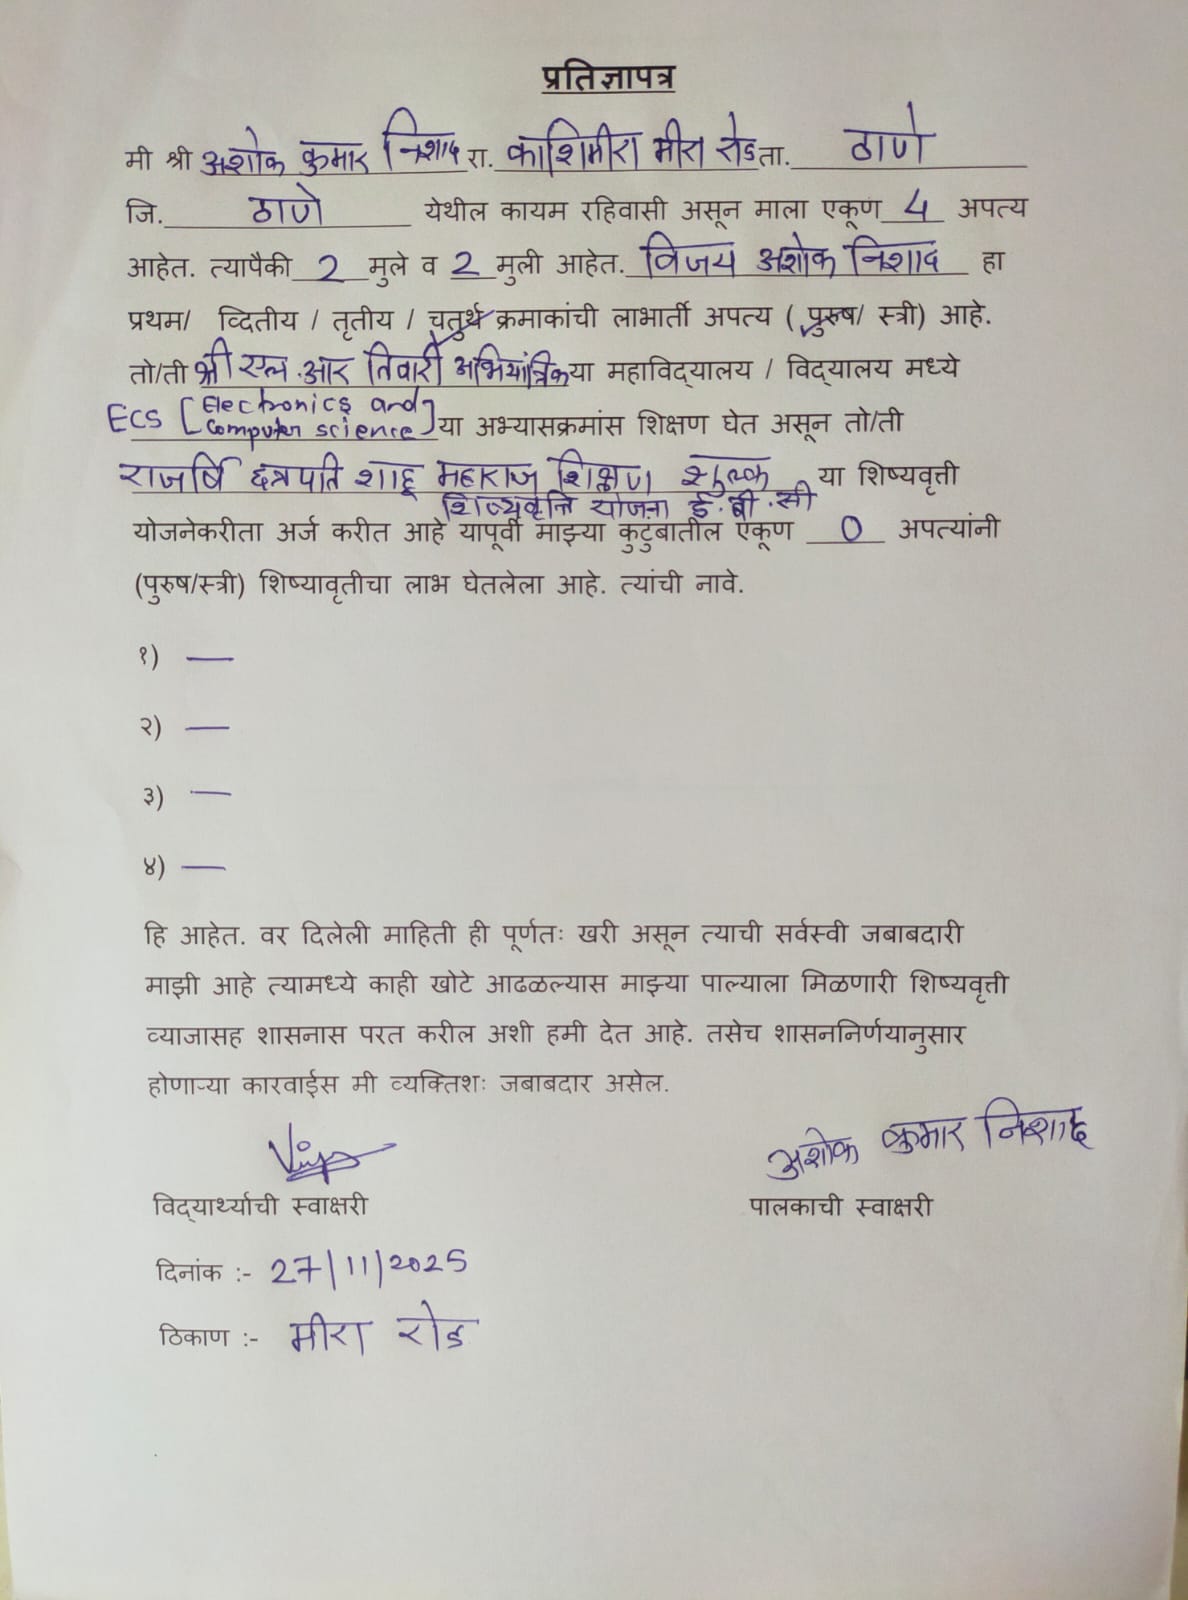 प्रतिज्ञापत्र
मी श्री अशोक कुमार निशाद रा. काशिमीरा मीरा रोड ता. ठाणे
जि. ठाणे येथील कायम रहिवासी असून माला एकूण 4 अपत्य
आहेत. त्यापैकी 2 मुले व 2 मुली आहेत. विजय अशोक निशाद हा
प्रथम/ व्दितीय / तृतीय / चतुर्थ क्रमाकांची लाभार्ती अपत्य ( पुरुष/ स्त्री) आहे.
तो/ती श्री एल .आर तिवारी अभियांत्रिक या महाविद्यालय / विद्यालय मध्ये
ECS [Electronics and computer science] या अभ्यासक्रमांस शिक्षण घेत असून तो/ती
राजर्षि छत्रपति शाहू महाराज शिक्षण शुल्क या शिष्यवृत्ती
शिष्यवृत्ति योजना ई.बी.सी
योजनेकरीता अर्ज करीत आहे यापूर्वी माझ्या कुटुबातील एकूण 0 अपत्यांनी
(पुरुष/स्त्री) शिष्यावृतीचा लाभ घेतलेला आहे. त्यांची नावे.
१) —
२) —
३) —
४) —
हि आहेत. वर दिलेली माहिती ही पूर्णतः खरी असून त्याची सर्वस्वी जबाबदारी
माझी आहे त्यामध्ये काही खोटे आढळल्यास माझ्या पाल्याला मिळणारी शिष्यवृत्ती
व्याजासह शासनास परत करील अशी हमी देत आहे. तसेच शासननिर्णयानुसार
होणाऱ्या कारवाईस मी व्यक्तिशः जबाबदार असेल.
अशोक कुमार निशाद
विद्यार्थ्याची स्वाक्षरी पालकाची स्वाक्षरी
दिनांक :- 27/11/2025
ठिकाण :- मीरा रोड